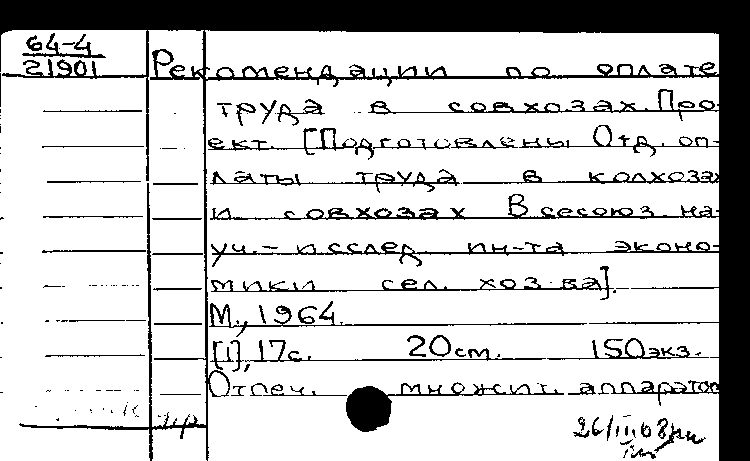 64-4
21901
Рекомендации по оплате
труда в совхозах. Про-
ект. [Подготовлены Отд. оп-
латы труда в колхозах
и совхозах Всесоюз. на-
уч.-исслед. ин-та эконо-
мики сел. хоз-ва].
М., 1964.
[1], 17с. 20см. 150экз.
Отпеч. множит. аппаратом